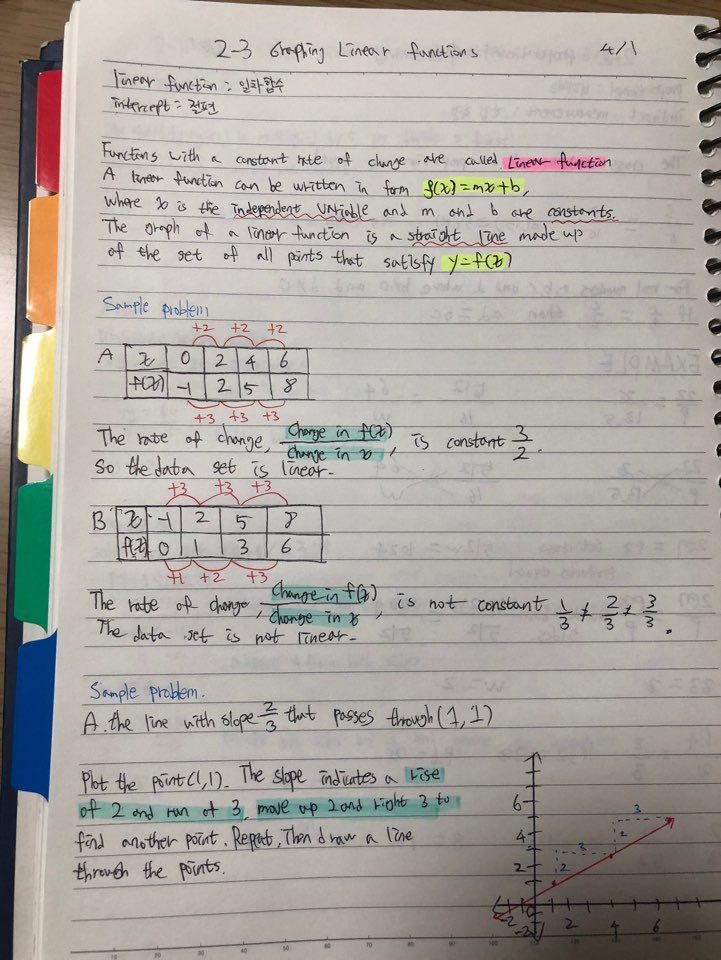 2-3 Graphing Linear functions 4/1
linear function = 일차함수
intercept = 절편
Functions with a constant rate of change are called Linear function
A linear function can be written in form f(x)=mx+b,
where x is the independent variable and m and b are constants.
The graph of a linear function is a straight line made up
of the set of all points that satisfy y=f(x)
Sample problem
+2 +2 +2
A x 0 2 4 6
f(x) -1 2 5 8
+3 +3 +3
The rate of change, Change in f(x)/Change in x, is constant 3/2.
So the data set is linear.
+3 +3 +3
B x -1 2 5 8
f(x) 0 1 3 6
+1 +2 +3
The rate of change, Change in f(x)/Change in x, is not constant 1/3 ≠ 2/3 ≠ 3/3
The data set is not linear.
Sample problem.
A. the line with slope 2/3 that passes through (1,1)
Plot the point (1,1). The slope indicates a rise
of 2 and run of 3, move up 2 and right 3 to
find another point. Repeat, Then draw a line
through the points.
6
4
2
3
2
3
2
-2 0 2 4 6
-2